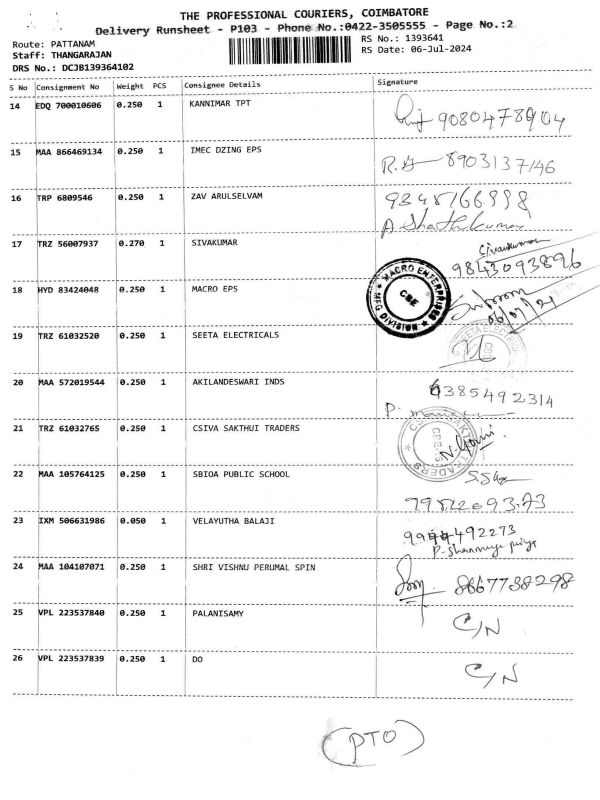 THE PROFESSIONAL COURIERS, COIMBATORE
Delivery Runsheet - P103 - Phone No.:0422-3505555 - Page No.:2
Route: PATTANAM
RS No.: 1393641
Staff: THANGARAJAN
RS Date: 06-Jul-2024
DRS No.: DCJB139364102
S No Consignment No Weight PCS Consignee Details Signature
14 EDQ 700010606 0.250 1 KANNIMAR TPT 9080478904
15 MAA 866469134 0.250 1 IMEC DZING EPS 8903137146
16 TRP 6809546 0.250 1 ZAV ARULSELVAM
A. Shathikumar
17 TRZ 56007937 0.270 1 SIVAKUMAR
Civankumar
9843093896
18 HYD 83424048 0.250 1 MACRO EPS
MACRO ENTERPRISES
MFG DIVISION
CBE
19 TRZ 61032520 0.250 1 SEETA ELECTRICALS
20 MAA 572019544 0.250 1 AKILANDESWARI INDS 6385492314
21 TRZ 61032765 0.250 1 CSIVA SAKTHUI TRADERS
22 MAA 105764125 0.250 1 SBIOA PUBLIC SCHOOL
23 IXM 506631986 0.050 1 VELAYUTHA BALAJI 9994492273
P. Shanmuga priya
24 MAA 104107071 0.250 1 SHRI VISHNU PERUMAL SPIN 8667738298
25 VPL 223537840 0.250 1 PALANISAMY C/N
26 VPL 223537839 0.250 1 DO C/N
(PTO)